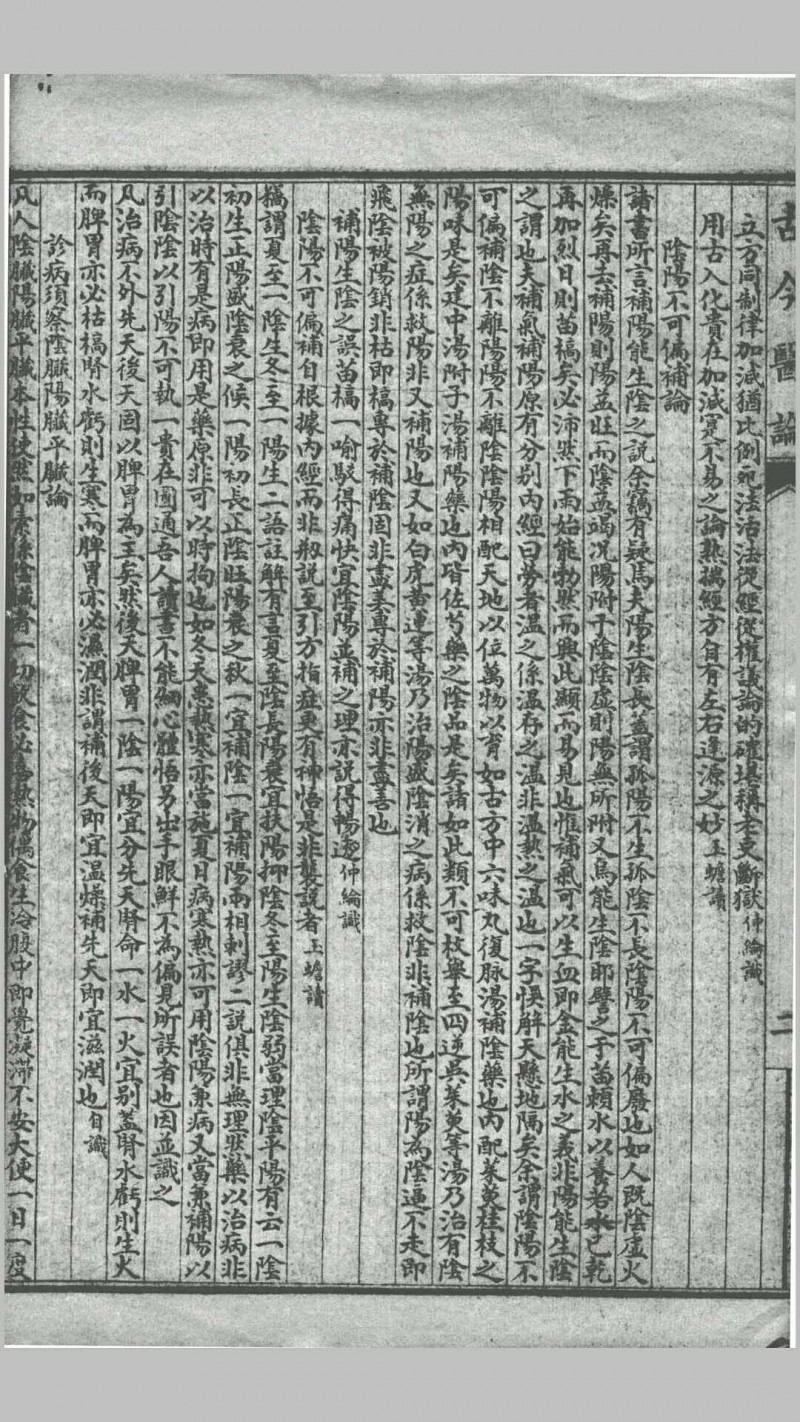 古今醫論
二
立方同制律加減猶比例死法活法從經從權議論的確堪稱老吏斷獄仲綸識
用古入化貴在加減寔不易之論熟搆經方自有左右逢源之妙玉蟾讀
陰陽不可偏補論
諸書所言補陽能生陰之說余竊有疑焉夫陽生陰長蓋謂孤陽不生孤陰不長陰陽不可偏廢也如人既陰虛火
燥矣再去補陽則陽益旺而陰益竭况陽附于陰陰虛則陽無所附又烏能生陰耶譬之于苗賴水以養若水已乾
再加烈日則苗槁矣必沛然下雨始能勃然而興此顯而易見也惟補氣可以生血即金能生水之義非陽能生陰
之謂也夫補氣補陽原有分别內經曰勞者溫之係溫存之溫非溫熱之溫也一字悞解天懸地隔矣余謂陰陽不
可偏補陰不離陽陽不離陰陰陽相配天地以位萬物以育如古方中六味丸復脉湯補陰藥也內配萊萸桂枝之
陽味是矣建中湯附子湯補陽藥也內皆佐芍藥之陰品是矣諸如此類不可枚舉至四逆吳茱萸等湯乃治有陰
無陽之症係救陽非又補陽也又如白虎黃連等湯乃治陽盛陰消之病係救陰非補陰也所謂陽為陰逼不走即
飛陰被陽銷非枯即槁專於補陰固非盡美專於補陽亦非盡善也
補陽生陰之誤苗槁一喻駁得痛快宜陰陽並補之理亦說得暢透仲綸識
陰陽不可偏補自根據內經而非剙說至引方指症更有神悟是非襲說者玉蟾讀
竊謂夏至一陰生冬至一陽生二語註解有言夏至陰長陽衰宜扶陽抑陰冬至陽生陰弱當理陰平陽有云一陰
初生正陽盛陰衰之候一陽初長正陰旺陽衰之秋一宜補陰一宜補陽兩相剌謬二說俱非無理然藥以治病非
以治時有是病即用是藥原非可以時拘也如冬天患熱寒亦當施夏日病寒熱亦可用陰陽兼病又當兼補陽以
引陰陰以引陽不可執一貴在圓通吾人讀書不能細心體悟另出手眼鮮不為偏見所誤者也因並識之
凡治病不外先天後天固以脾胃為主矣然後天脾胃一陰一陽宜分先天腎命一水一火宜别蓋腎水虧則生火
而脾胃亦必枯槁腎水虧則生寒而脾胃亦必濕潤非謂補後天即宜溫燥補先天即宜滋潤也自識
診病須察陰臟陽臟平臟論
凡人陰臟陽臟平臟本性使然如素係陰臟者一切飲食必喜熱物偶食生冷腹中即覺凝滯不安大便一日一度